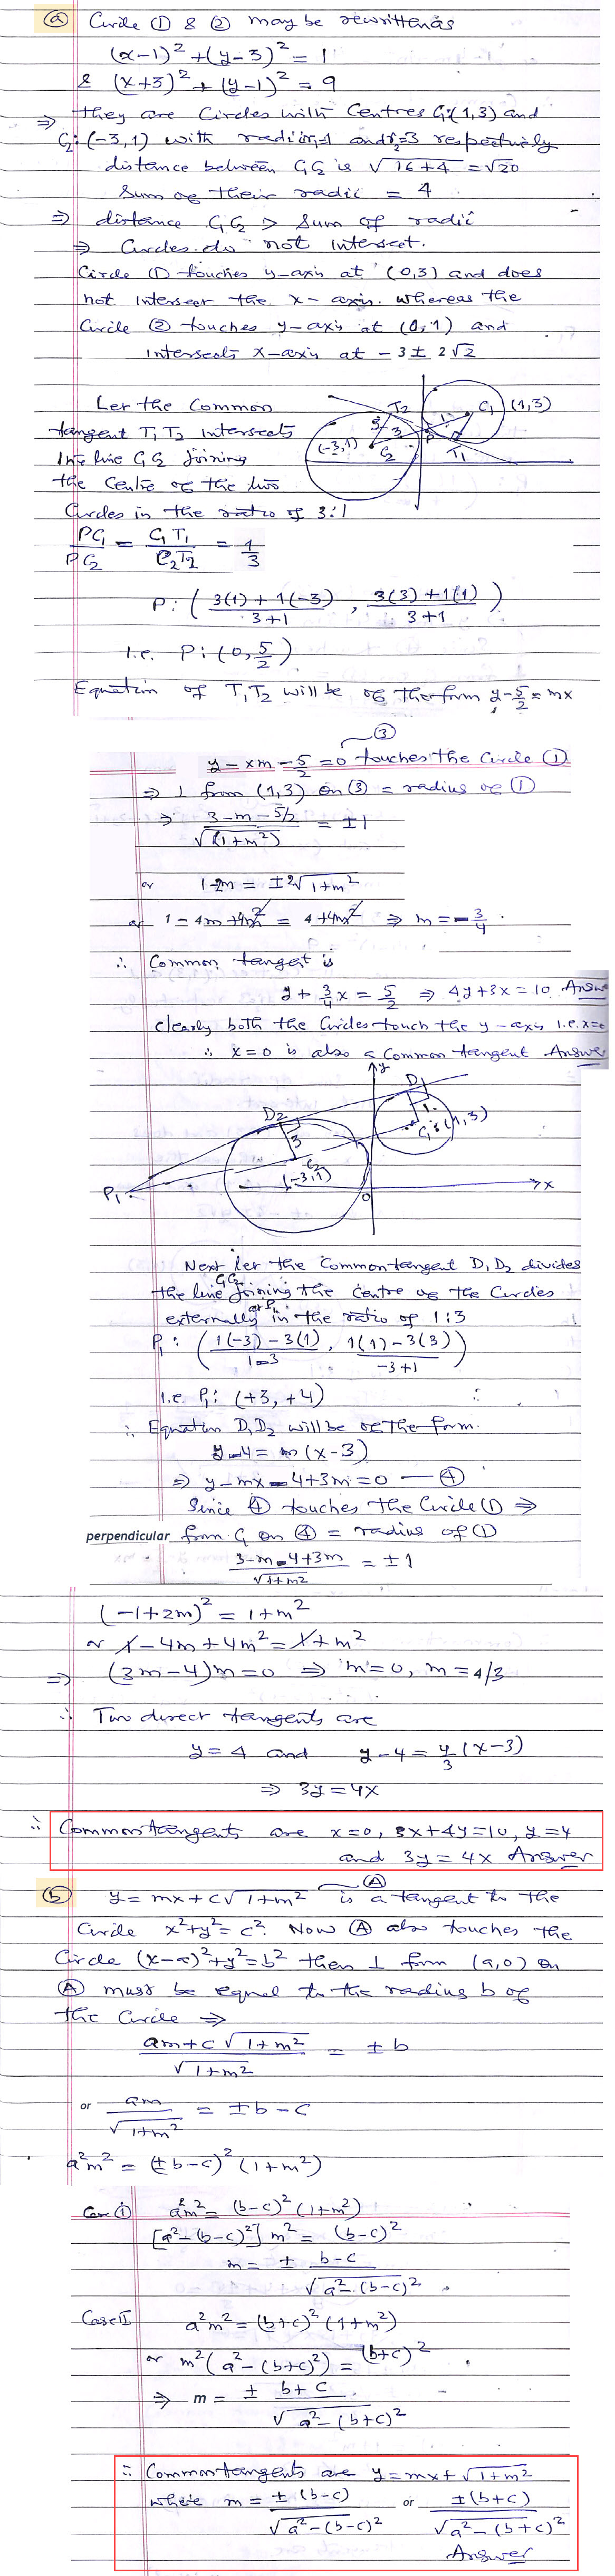 (a) Circle (1) & (2) may be rewritten as
(x-1)² + (y-3)² = 1
& (x+3)² + (y-1)² = 9
⇒ they are Circles with Centres C₁:(1,3) and
C₂:(-3,1) with radii r₁=1 and r₂=3 respectively
distance between C₁C₂ is √16+4 = √20
Sum of their radii = 4
⇒ distance C₁C₂ > Sum of radii
⇒ Circles do not intersect.
Circle (1) touches y-axis at (0,3) and does
not intersect the x-axis. whereas the
Circle (2) touches y-axis at (0,1) and
intersects x-axis at -3 ± 2√2
Let the Common
tangent T₁T₂ intersects
the line C₁C₂ joining
the Centre of the two
Circles in the ratio of 3:1
T₂ C₁ (1,3)
3 3 P 1
(-3,1) C₂ T₁
PC₁/PC₂ = C₁T₁/C₂T₂ = 1/3
P: ( 3(1)+1(-3)/3+1 , 3(3)+1(1)/3+1 )
i.e. P: (0, 5/2)
Equation of T₁T₂ will be of the form y - 5/2 = mx
(3)
y - xm - 5/2 = 0 touches the Circle (1)
⇒ ⊥ from (1,3) on (3) = radius of (1)
⇒ 3-m-5/2 / √(1+m²) = ±1
or 1-2m = ±2√1+m²
or 1 - 4m + 4m² = 4+4m² ⇒ m = -3/4
∴ Common tangent is
y + 3/4 x = 5/2 ⇒ 4y+3x = 10 Answ
clearly both the Circles touch the y-axis i.e. x=0
∴ x=0 is also a Common tangent Answer
y
D₁
D₂ 1
3 C₁:(1,3)
C₂
(-3,1)
P₁ O x
Next let the Common tangent D₁D₂ divides
the line C₁C₂ joining the Centre of the Circles
externally at P₁ in the ratio of 1:3
P₁: ( 1(-3)-3(1)/1-3 , 1(1)-3(3)/-3+1 )
i.e. P₁: (+3, +4)
∴ Equation D₁D₂ will be of the form.
y-4 = m(x-3)
⇒ y-mx-4+3m = 0 — (4)
Since (4) touches the Circle (1) ⇒
perpendicular from C₁ on (4) = radius of (1)
3-m-4+3m / √1+m² = ±1
(-1+2m)² = 1+m²
or 1-4m+4m² = 1+m²
⇒ (3m-4)m = 0 ⇒ m=0, m=4/3
∴ Two direct tangents are
y=4 and y-4 = 4/3 (x-3)
⇒ 3y=4x
∴ Common tangents are x=0, 3x+4y=10, y=4
and 3y=4x Answer
(b) y = mx+c√1+m² (A) is a tangent to the
Circle x²+y²=c². Now (A) also touches the
Circle (x-a)²+y²=b² then ⊥ from (a,0) on
(A) must be equal to the radius b of
the Circle ⇒
am+c√1+m² / √1+m² = ±b
or am/√1+m² = ±b-c
a²m² = (±b-c)² (1+m²)
Case (i) a²m² = (b-c)² (1+m²)
[a²-(b-c)²] m² = (b-c)²
m = ± b-c / √a²-(b-c)²
Case II a²m² = (b+c)² (1+m²)
or m²(a²-(b+c)²) = (b+c)²
⇒ m = ± b+c / √a²-(b+c)²
∴ Common tangents are y=mx+√1+m²
where m = ±(b-c)/√a²-(b-c)² or ±(b+c)/√a²-(b+c)²
Answer